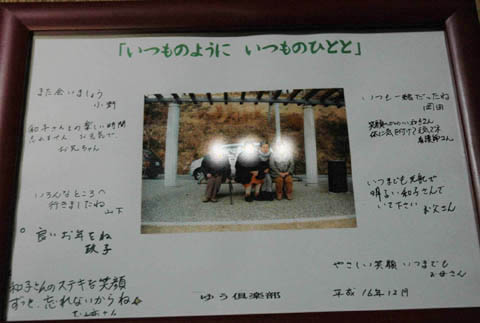 「いつものように いつものひとと」
また会いましょう
小野
和子さんとの楽しい時間
お元気で
お兄ちゃん
いろんなところへ
行きましたね
山下
良いお年をね
和子さんのステキな笑顔
ずっと、忘れないからね
いつも一緒だったね
岡田
笑顔のかわいい和子さん
体に気を付けて下さいね
看護師さん
いつまでも元気で
明るい和子さんで
いて下さい
お父さん
やさしい笑顔いつまでも
お母さん
ゆう倶楽部
平成16年12月